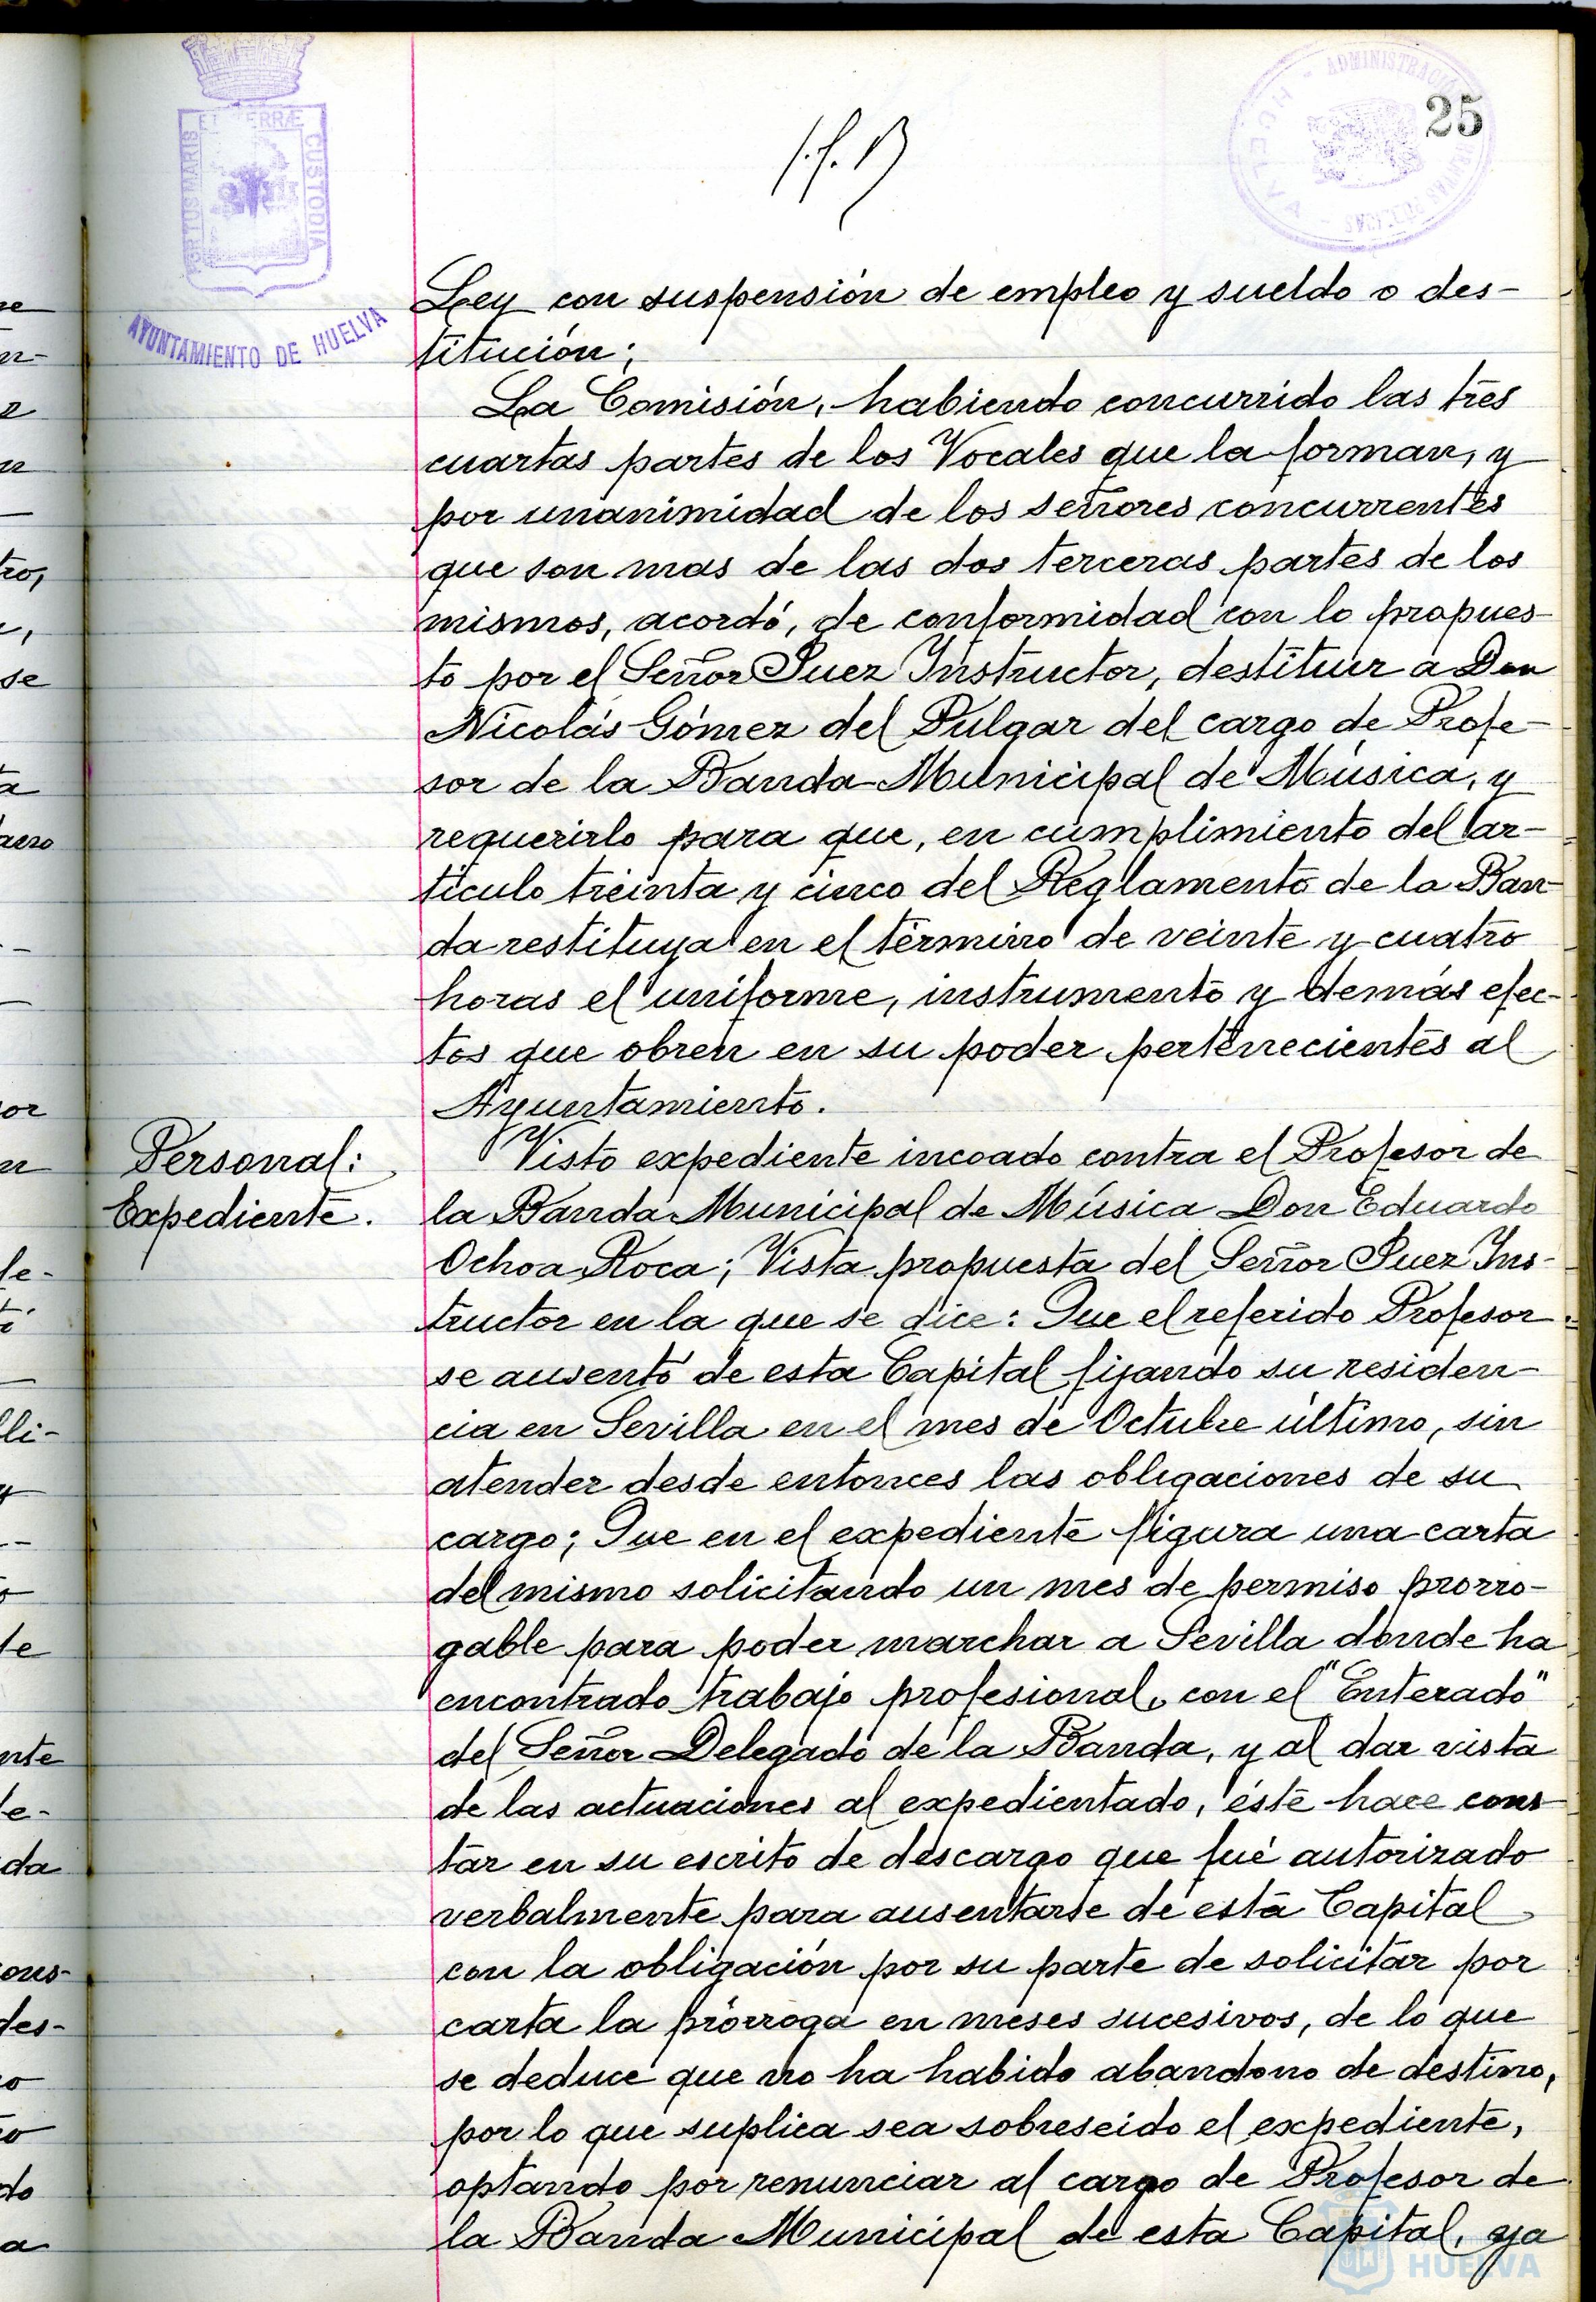 25
PORTUS MARIS ET TERRÆ CUSTODIA
AYUNTAMIENTO DE HUELVA
HUELVA
Ley con suspensión de empleo y sueldo o des-
titución;
La Comisión, habiendo concurrido las tres
cuartas partes de los Vocales que la forman, y
por unanimidad de los señores concurrentes
que son mas de las dos terceras partes de los
mismos, acordó, de conformidad con lo propues-
to por el Señor Juez Instructor, destituir a Don
Nicolás Gómez del Pulgar del cargo de Profe-
sor de la Banda Municipal de Música, y
requerirlo para que, en cumplimiento del ar-
tículo treinta y cinco del Reglamento de la Ban-
da restituya en el término de veinte y cuatro
horas el uniforme, instrumento y demás efec-
tos que obren en su poder pertenecientes al
Ayuntamiento.
Personal:
Expediente.
Visto expediente incoado contra el Profesor de
la Banda Municipal de Música Don Eduardo
Ochoa Roca; Vista propuesta del Señor Juez Ins-
tructor en la que se dice: Que el referido Profesor
se ausentó de esta Capital fijando su residen-
cia en Sevilla en el mes de Octubre último, sin
atender desde entonces las obligaciones de su
cargo; Que en el expediente figura una carta
del mismo solicitando un mes de permiso prorro-
gable para poder marchar a Sevilla donde ha
encontrado trabajo profesional, con el "Enterado"
del Señor Delegado de la Banda, y al dar vista
de las actuaciones al expedientado, éste hace cons-
tar en su escrito de descargo que fué autorizado
verbalmente para ausentarse de esta Capital
con la obligación por su parte de solicitar por
carta la prórroga en meses sucesivos, de lo que
se deduce que no ha habido abandono de destino,
por lo que suplica sea sobreseido el expediente,
optando por renunciar al cargo de Profesor de
la Banda Municipal de esta Capital, ya
HUELVA